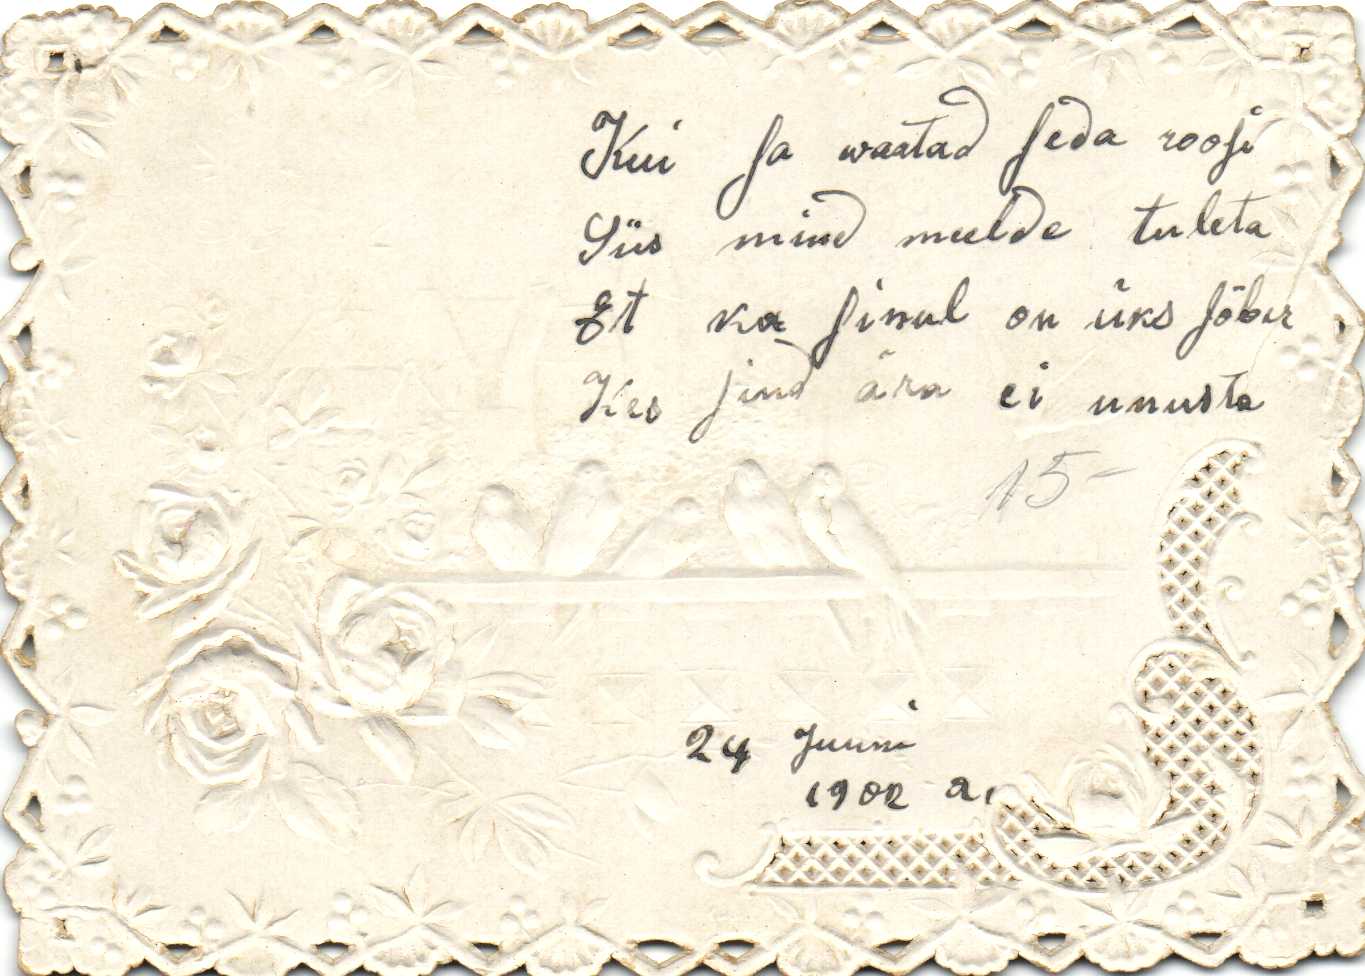 Kui sa waatad seda roosi
Siis mind meelde tuleta
Et ka sinul on üks sõber
Kes sind ära ei unusta
15-
24 Juuni
1902 a.